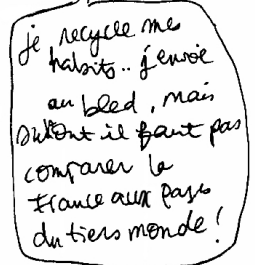 je recycle mes
habits.. j'envoie
au bled, mais
surtout il faut pas
comparer la
France aux pays
du tiers monde !